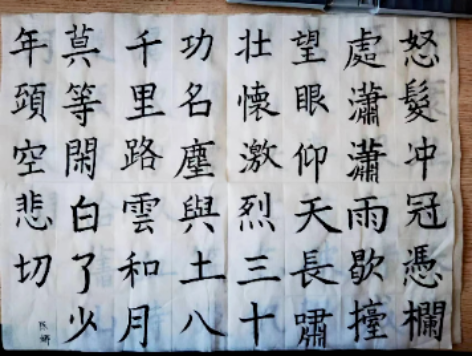 怒髮冲冠憑欄
處瀟瀟雨歇擡
望眼仰天長嘯
壯懷激烈三十
功名塵與土八
千里路雲和月
莫等閑白了少
年頭空悲切